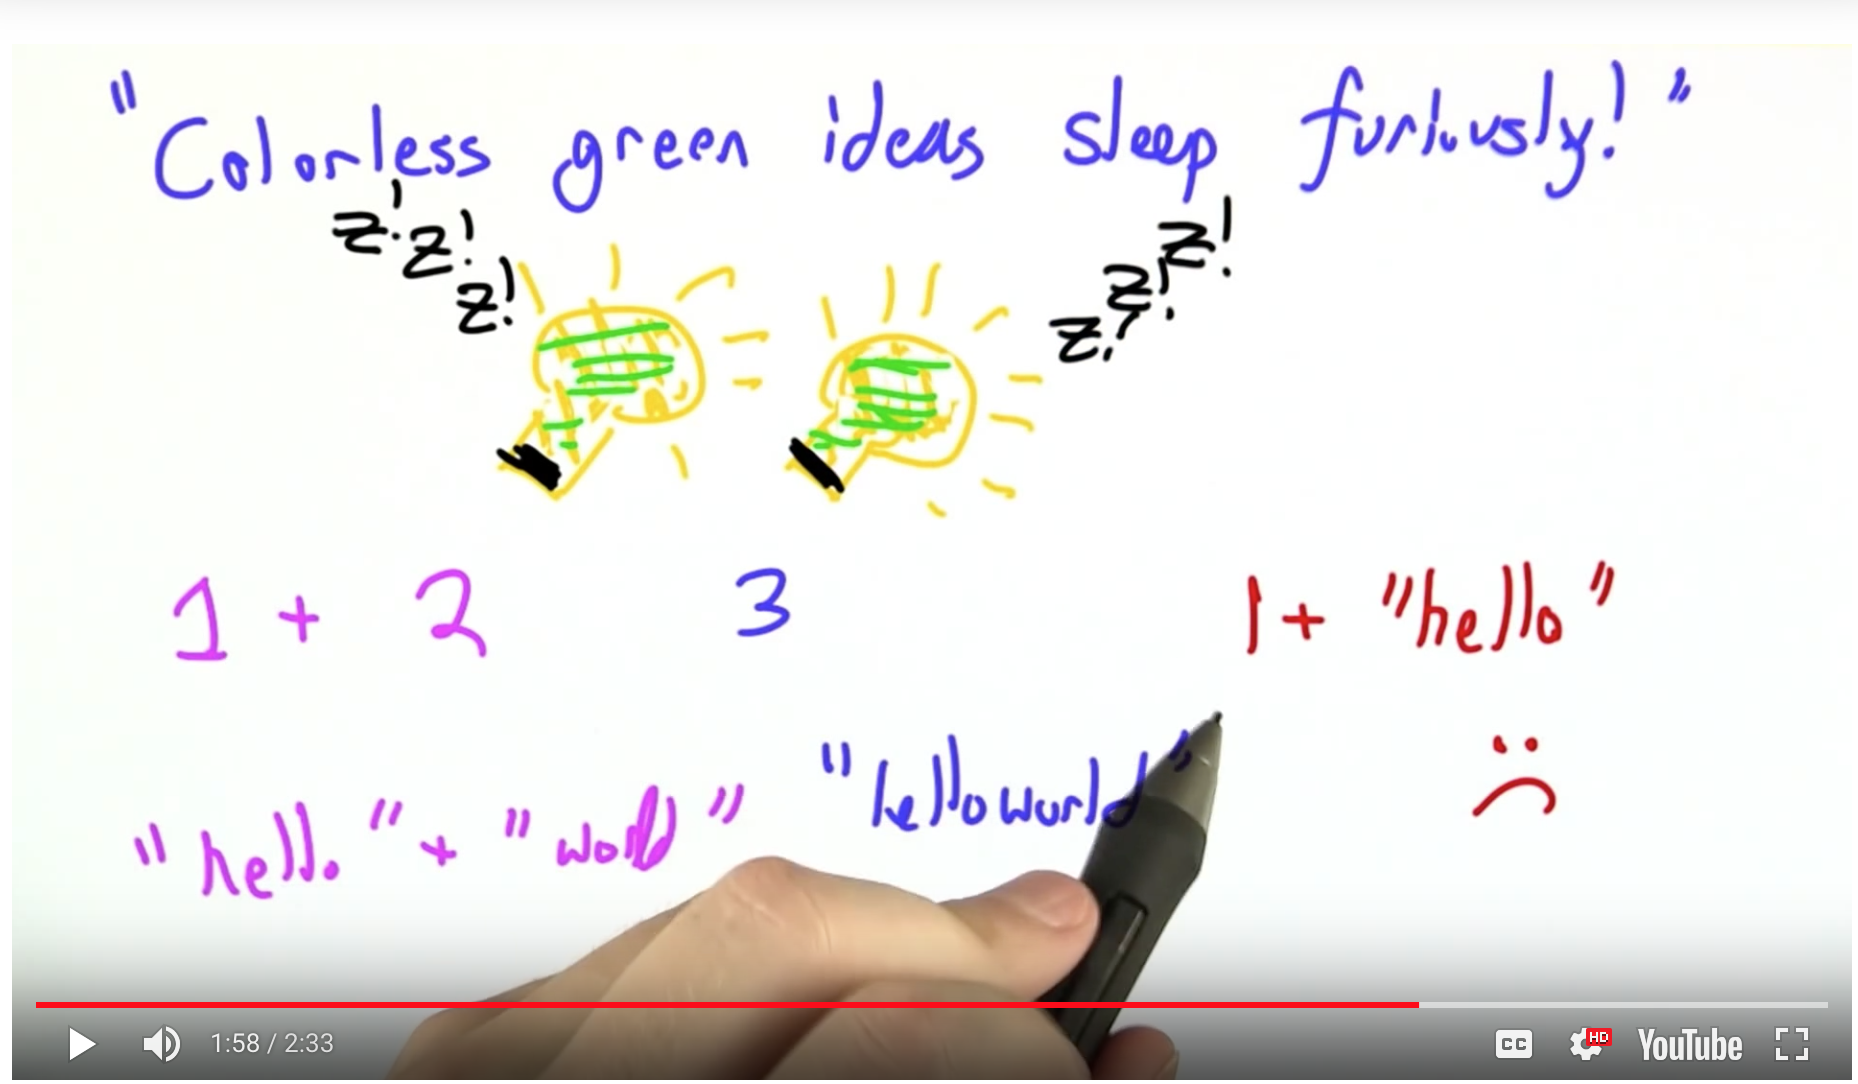 "Colorless green ideas sleep furiously!"
z! z! z!
z? z! z!
1 + 2 3
1 + "hello"
"hello" + "world" "helloworld"
1:58 / 2:33
CC HD YouTube